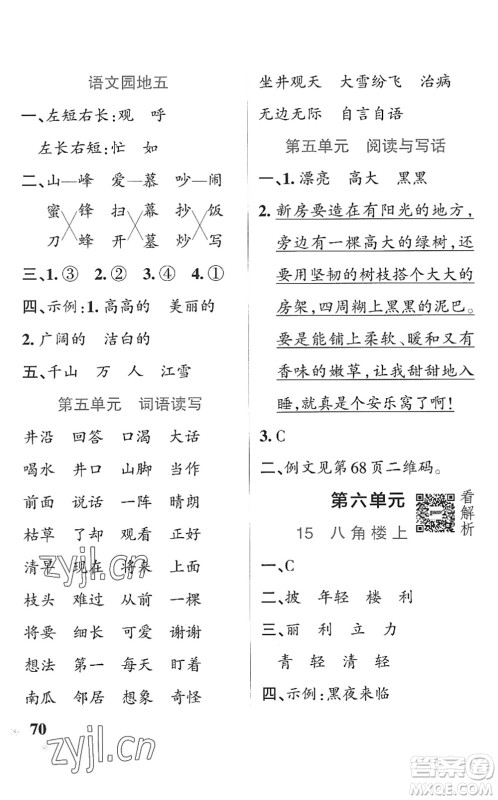 语文园地五
一、左短右长:观 呼
左长右短:忙 如
二、山—峰 爱—慕 吵—闹
蜜 锋 扫 幕 吵 饭
刀 蜂 开 墓 炒 闹
三、1.③ 2.② 3.④ 4.①
四、示例:1.高高的 美丽的
2.广阔的 洁白的
五、千山 万 人 江雪
第五单元 词语读写
井沿 回答 口渴 大话
喝水 井口 山脚 当作
前面 说话 一阵 晴朗
枯草 了却 观看 正好
清早 现在 将来 起来
枝头 难过 从前 一棵
将要 细长 可爱 谢谢
想法 第一 每天 盯着
南瓜 邻居 想象 奇怪
70
坐井观天 大雪纷飞 治病
无边无际 自言自语
第五单元 阅读与写话
一、1.漂亮 高大 黑黑
2.新房要造在有阳光的地方,
旁边有一棵高大的绿树,还
要用坚韧的树枝搭个大大的
房架,四周糊上黑黑的泥巴。
要是能铺上柔软、暖和又有
香味的嫩草,让我甜甜地入
睡,就真是个安乐窝了啊!
3.C
二、例文见第68页二维码。
第六单元
看解析
15 八角楼上
一、C
二、披 年轻 楼 利
三、丽 利 立 力
青 轻 清 轻
四、示例:黑夜来临
zyjl.cn
zyjl.cn
答案圈
MXQE.COM